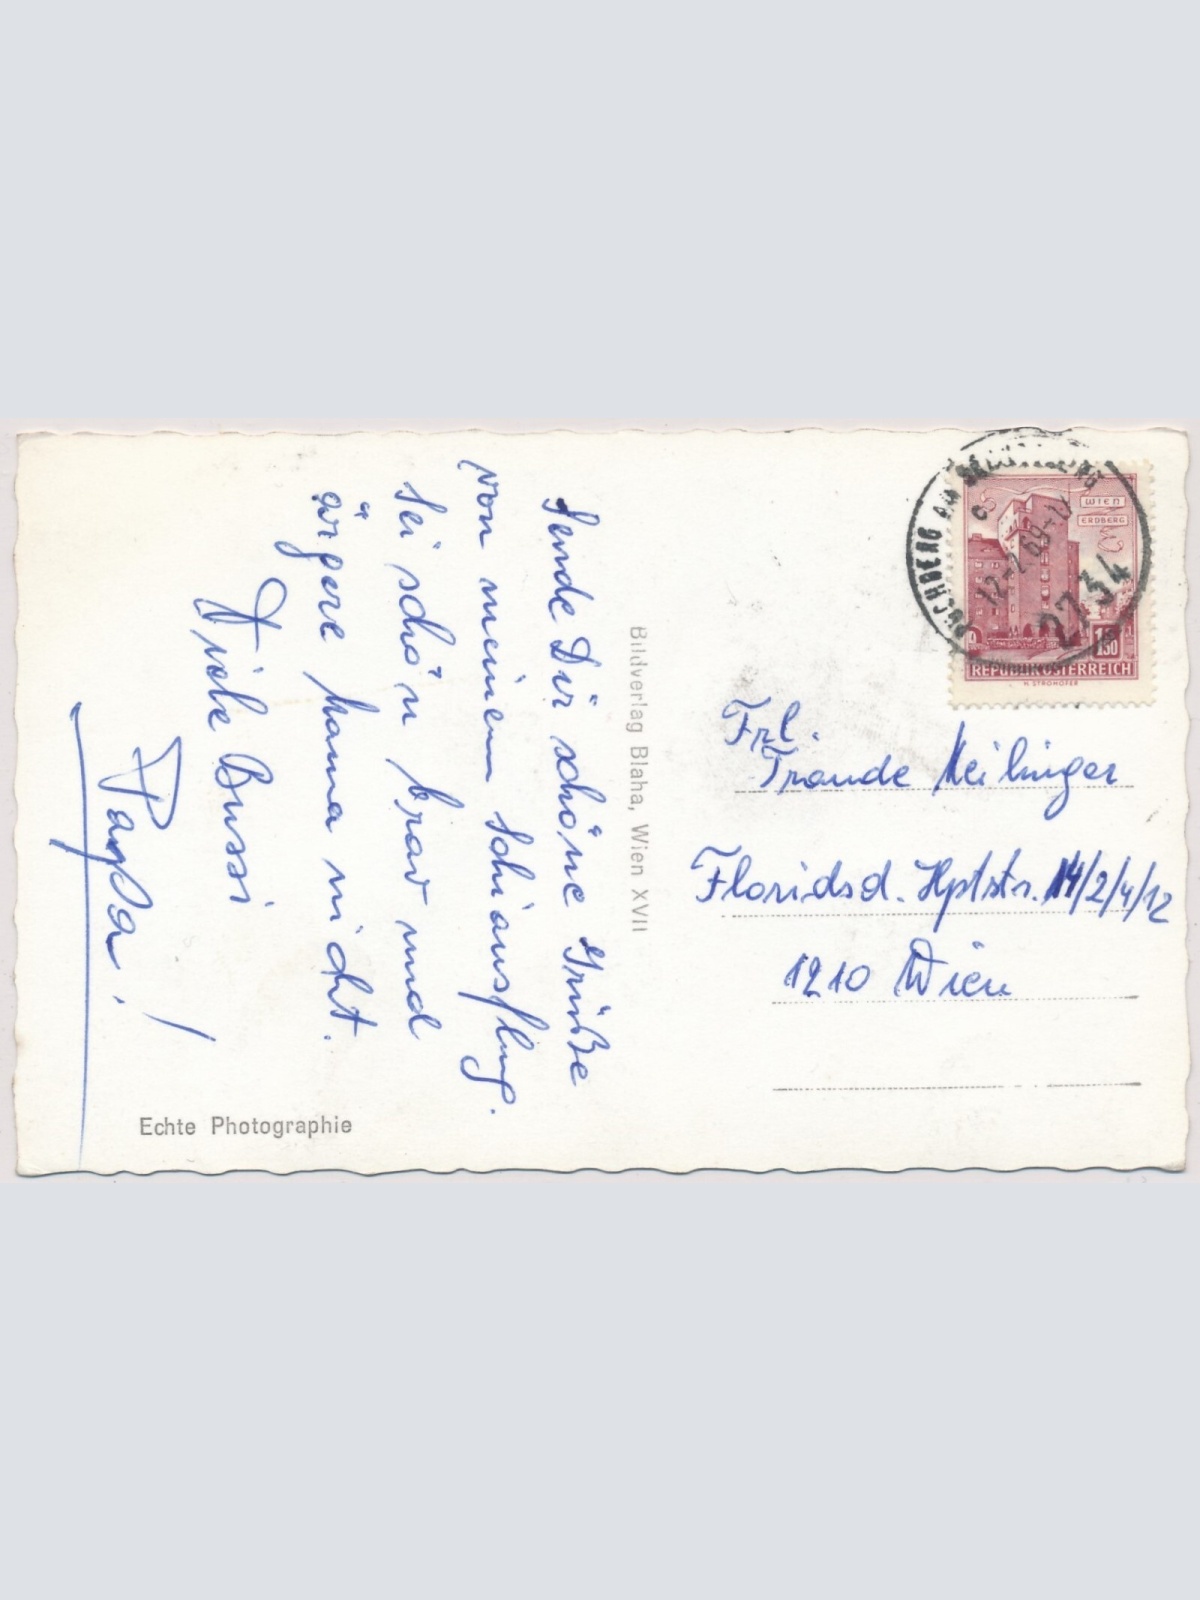 Sende Dir schöne Grüße
von meinem Schiausflug.
Sei schön brav und
ärgere Mama nicht.
Viele Bussi
Papa!
Bildverlag Blaha, Wien XVII
Echte Photographie
PUCHBERG AM SCHNEEBERG
2734
WIEN
ERDBERG
1.50
REPUBLIK ÖSTERREICH
H. STROHOFER
Frl.
Traude
Floridsd. Hptstr. 14/2/4/12
1210 Wien